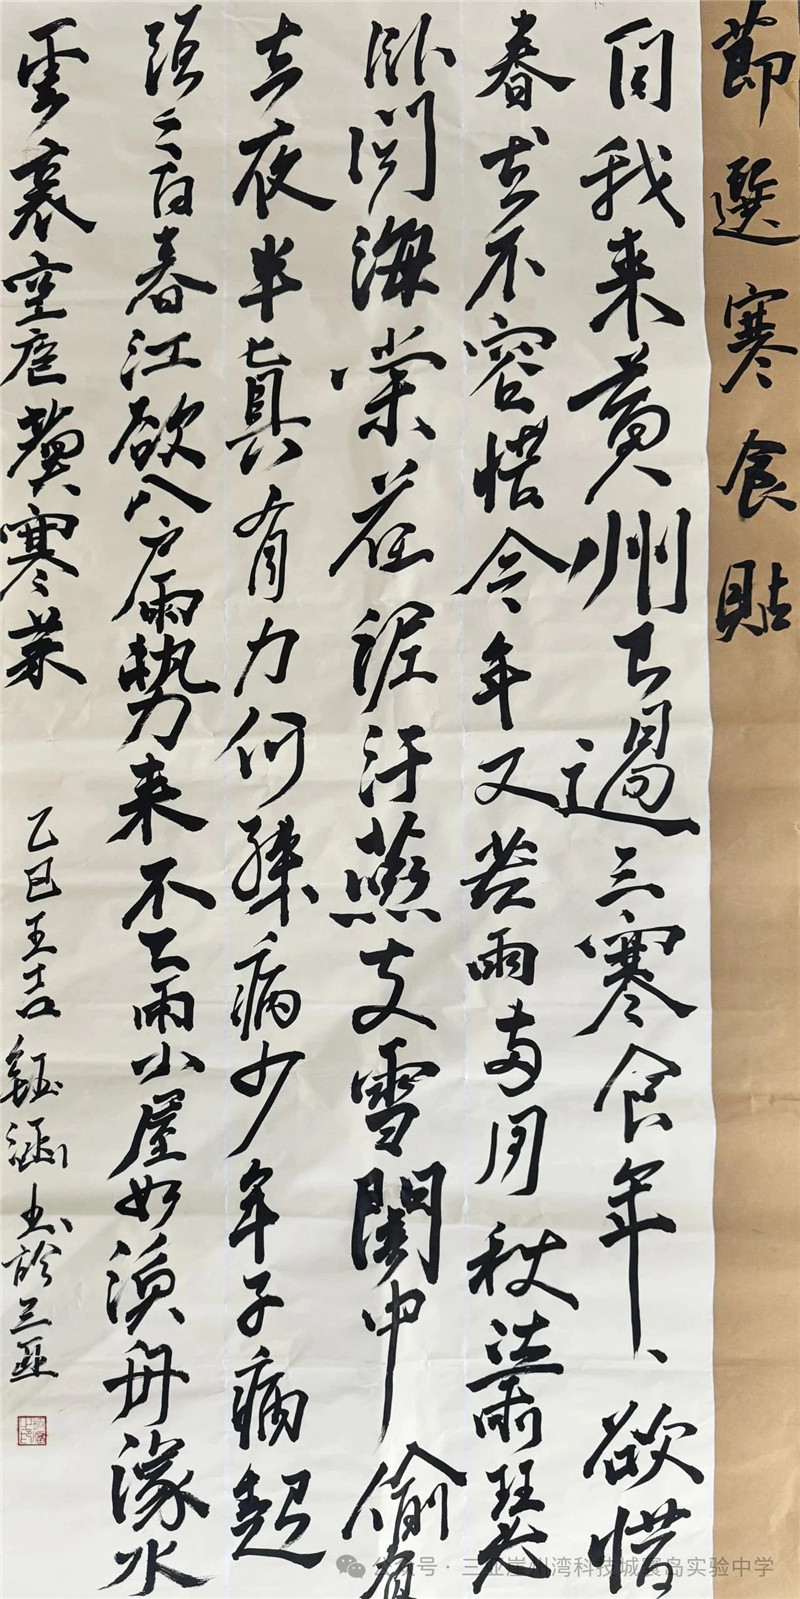 節選寒食貼
自我来黄州已過三寒食年、欲惜
春去不容惜今年又苦雨兩月秋蕭瑟
臥聞海棠花泥汙燕支雪闇中偷負
去夜半真有力何殊病少年子病起
頭已白春江欲入户雨勢来不已雨小屋如漁舟濛水
雲裏空庖煑寒菜
乙巳王吉鈺涵书於三亞
公众号 · 三亚崖州湾科技城寰岛实验中学